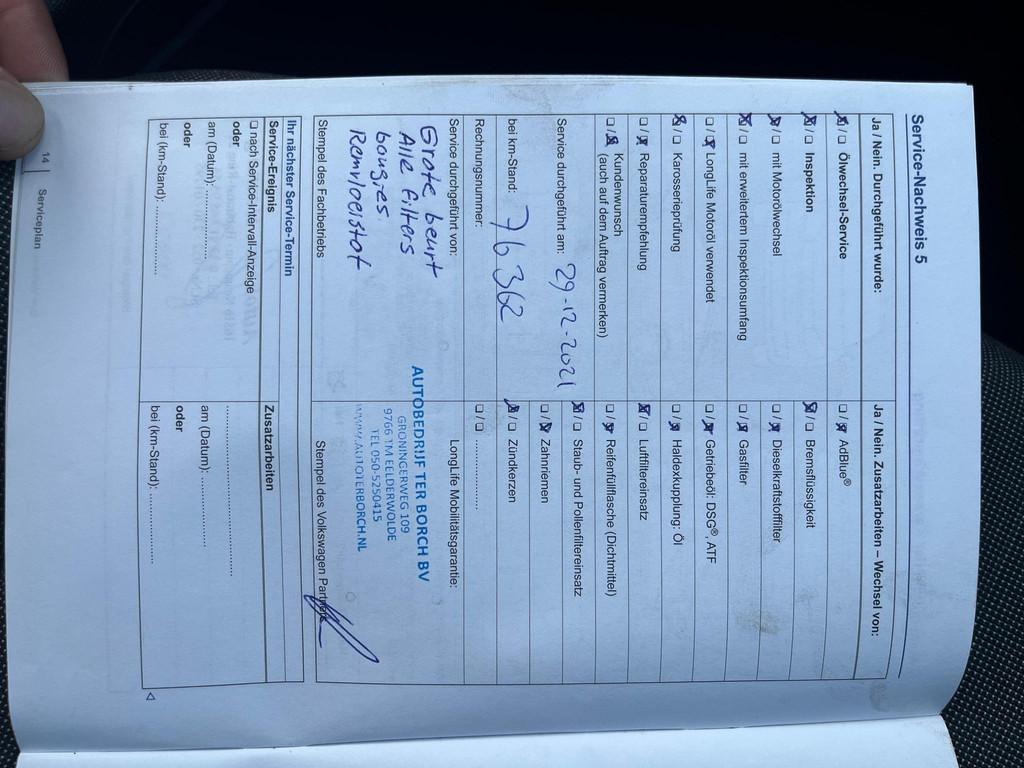 Service-Nachweis 5
Ja / Nein. Durchgeführt wurde:
☒/☐ Ölwechsel-Service
☒/☐ Inspektion
☒/☐ mit Motorölwechsel
☒/☐ mit erweitertem Inspektionsumfang
☐/☒ LongLife Motoröl verwendet
☒/☐ Karosserieprüfung
☐/☒ Reparaturempfehlung
☐/☒ Kundenwunsch
(auch auf dem Auftrag vermerken)
Service durchgeführt am: 29-12-2021
bei km-Stand: 76 362
Rechnungsnummer:
Ja / Nein. Zusatzarbeiten – Wechsel von:
☐/☒ AdBlue®
☒/☐ Bremsflüssigkeit
☐/☒ Dieselkraftstofffilter
☐/☒ Gasfilter
☐/☒ Getriebeöl: DSG®, ATF
☐/☒ Haldexkupplung: Öl
☒/☐ Luftfiltereinsatz
☐/☒ Reifenfüllflasche (Dichtmittel)
☒/☐ Staub- und Pollenfiltereinsatz
☐/☒ Zahnriemen
☒/☐ Zündkerzen
☐/☐ ..................
Service durchgeführt von:
LongLife Mobilitätsgarantie:
Grote beurt
Alle filters
bougies.
Remvloeistof
AUTOBEDRIJF TER BORCH BV
GRONINGERWEG 109
9766 TM EELDERWOLDE
TEL 050-5250415
WWW.AUTOTERBORCH.NL
Stempel des Fachbetriebs
Stempel des Volkswagen Partners
Ihr nächster Service-Termin
Service-Ereignis
☐ nach Service-Intervall-Anzeige
oder
am (Datum): ..................
oder
bei (km-Stand): ..................
Zusatzarbeiten
..................................
am (Datum): ..................
oder
bei (km-Stand): ..................
14 | Serviceplan